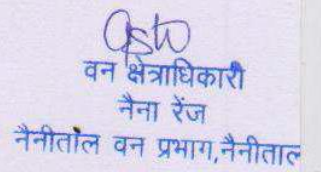 वन क्षेत्राधिकारी
नैना रेंज
नैनीताल वन प्रभाग,नैनीताल